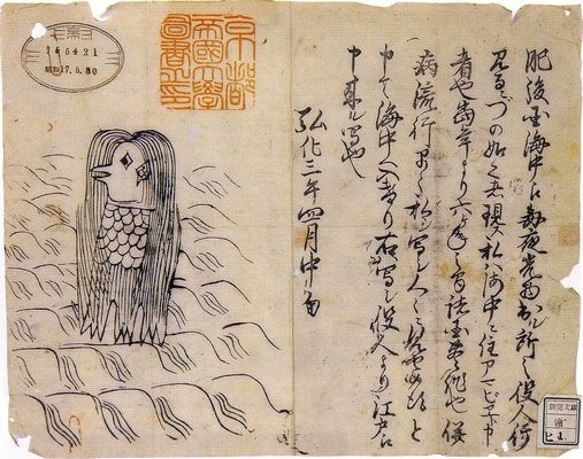 肥後国海中え毎夜光物出ル所之役人行
見るニづの如之者現ス私ハ海中ニ住アマビヱト申
者也当年より六ヶ年之間諸国豊作也併
病流行早々私ヲ写シ人々ニ見せ候得と
申て海中へ入けり右ハ写シ役人より江戸え
申来ル写也
弘化三年四月中旬
京都
帝國大學
圖書之印
昭和17.5.30
新聞文庫